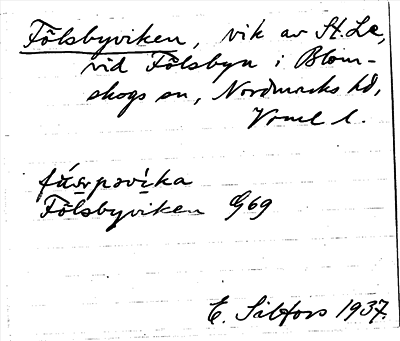 Fölsbyviken, vik av St. Le,
vid Fölsbyn i Blom-
skogs sn, Nordmarks hd,
Vrml l.
Fölsbyviken G69
E. Sibfors 1937.